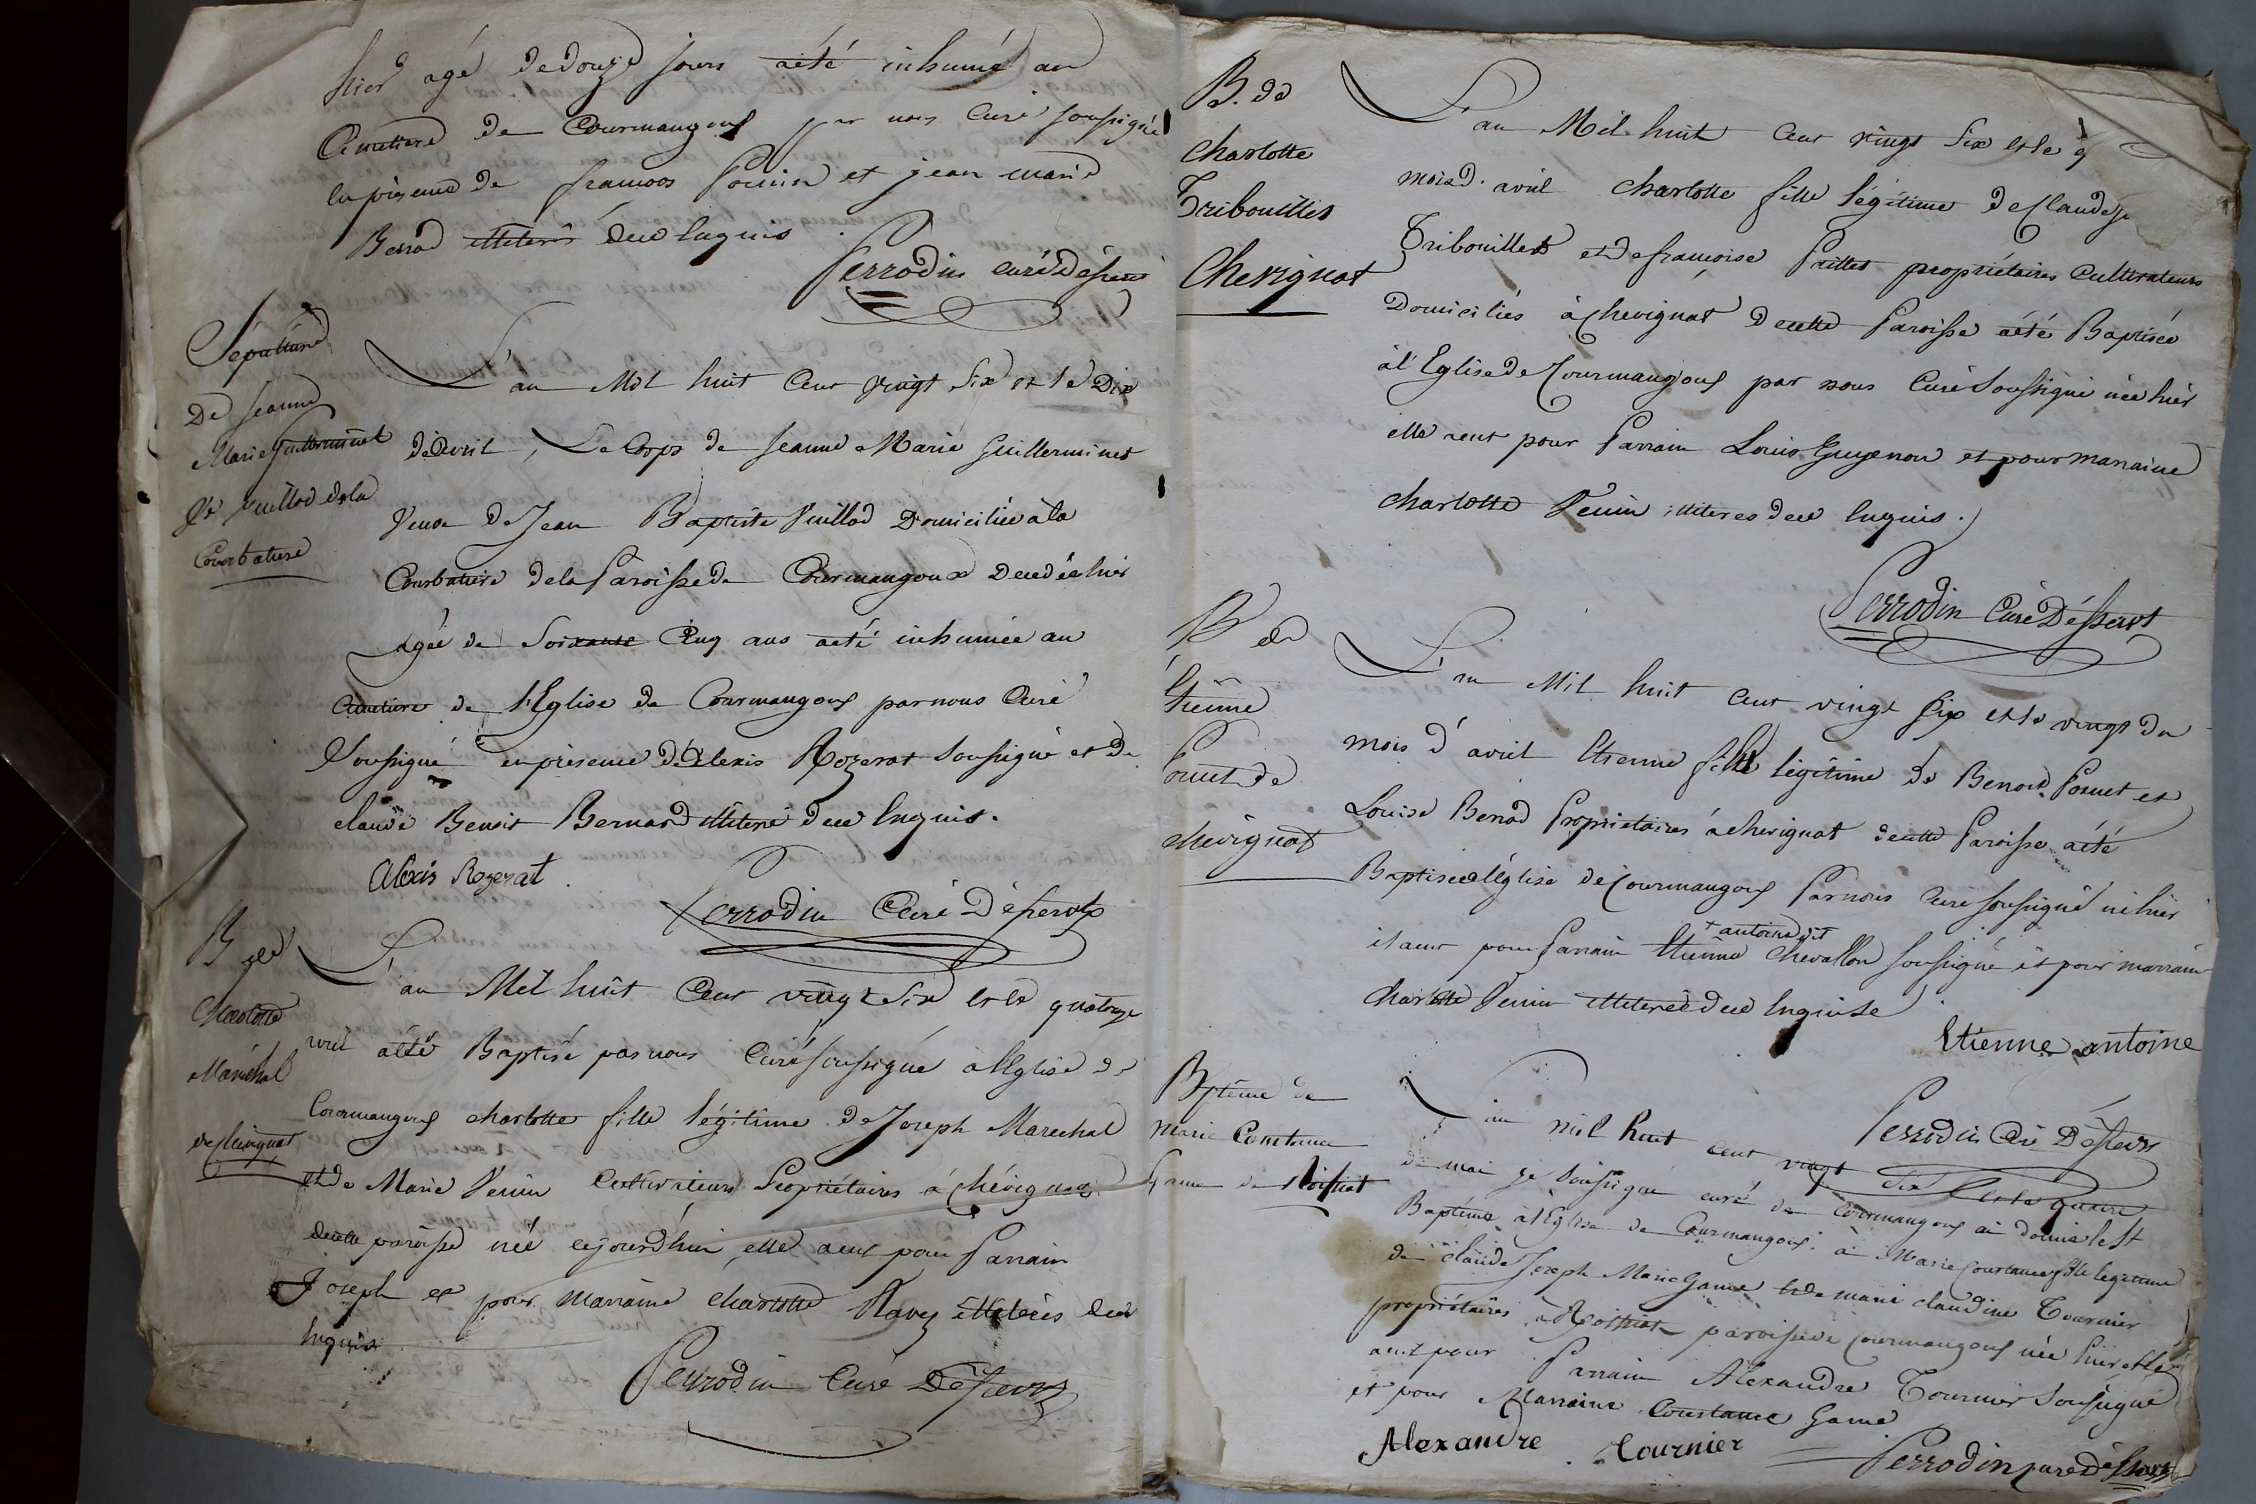 hier agé de douze jours a été inhumé au
Cimetiere de Courmangoux par nous curé soussigné
en présence de francois Pomin et jean marie
Berrod illiterés de ce Enquis
Perrodin curé Desserv
Sépulture
De jeanne
Marie Guillerminet
Ve Vuillod de la
Courbature
L'an Mil huit Cent vingt Six et le Dix
d'Avril, Le Corps de jeanne Marie Guillerminet
Veuve De Jean Baptiste Vuillod Domiciliée à la
Courbature de la Paroisse de Courmangoux Decedée hier
agée de Soixante Cinq ans a été inhumée au
Cimetiere de l'Eglise de Courmangoux par nous Curé
Soussigné en présence d'Alexis Rozerat Soussigné et de
claude Benoit Bernard illiteré de ce Enquis.
Alexis Rozerat
Perrodin Curé Desservt
B de
Charlotte
Maréchal
de Chevignat
L'an Mil huit Cent vingt Six et le quatorze
avril a été Baptisé par nous Curé soussigné a l'Eglise de
Courmangoux charlotte fille légitime de Joseph Marechal
et de Marie Venin Cultivateurs Propriétaires à Chévignat
de cette paroisse née cejourd'hui, elle a eu pour Parrain
Joseph et pour Marraine charlotte Ravez illiterés de ce
Enquis
Perrodin Curé Desserv
B. de
Charlotte
Tribouillet
Chevignat
L'an Mil huit Cent vingt Six et le
mois d'avril Charlotte fille légitime de Claude
Tribouillet et de francoise Paillet propriétaires Cultivateurs
Domiciliés à Chevignat de cette Paroisse a été Baptisée
à l'Eglise de Courmangoux par nous Curé Soussigné née hier
elle a eut pour Parrain Louis Guyenon et pour Marraine
Charlotte Venin illiteres de ce Enquis.
Perrodin Curé Desservt
B de
Etienne
Pomet de
chevignat
L'an Mil huit Cent vingt Six et le vingt du
mois d'avril Etienne fils légitime de Benoit Pomet et
Louise Berrod Propriétaires à chevignat de cette Paroisse a été
Baptisé à l'Église de Courmangoux Par nous Curé soussigné né hier
il a eut pour Parrain Etienne + antoine dit Chevallon soussigné et pour marraine
Charlotte Venin illiterée de ce Enquise
Etienne antoine
Perrodin Curé Desserv
Bptême de
Marie Constance
Game de Roissiat
L'an mil huit cent vingt Six et le quatre
de mai je soussigné curé de Courmangoux ai donné le St
Baptême à l'Eglise de Courmangoux à Marie Constance fille legitime
de claude Joseph Marie Game et de marie claudine Tournier
propriétaires à Roissiat paroisse de Courmangoux née hier, elle
a eut pour Parrain Alexandre Tournier Soussigné
et pour Marraine Constance Game
Alexandre Tournier
Perrodin curé Desserv